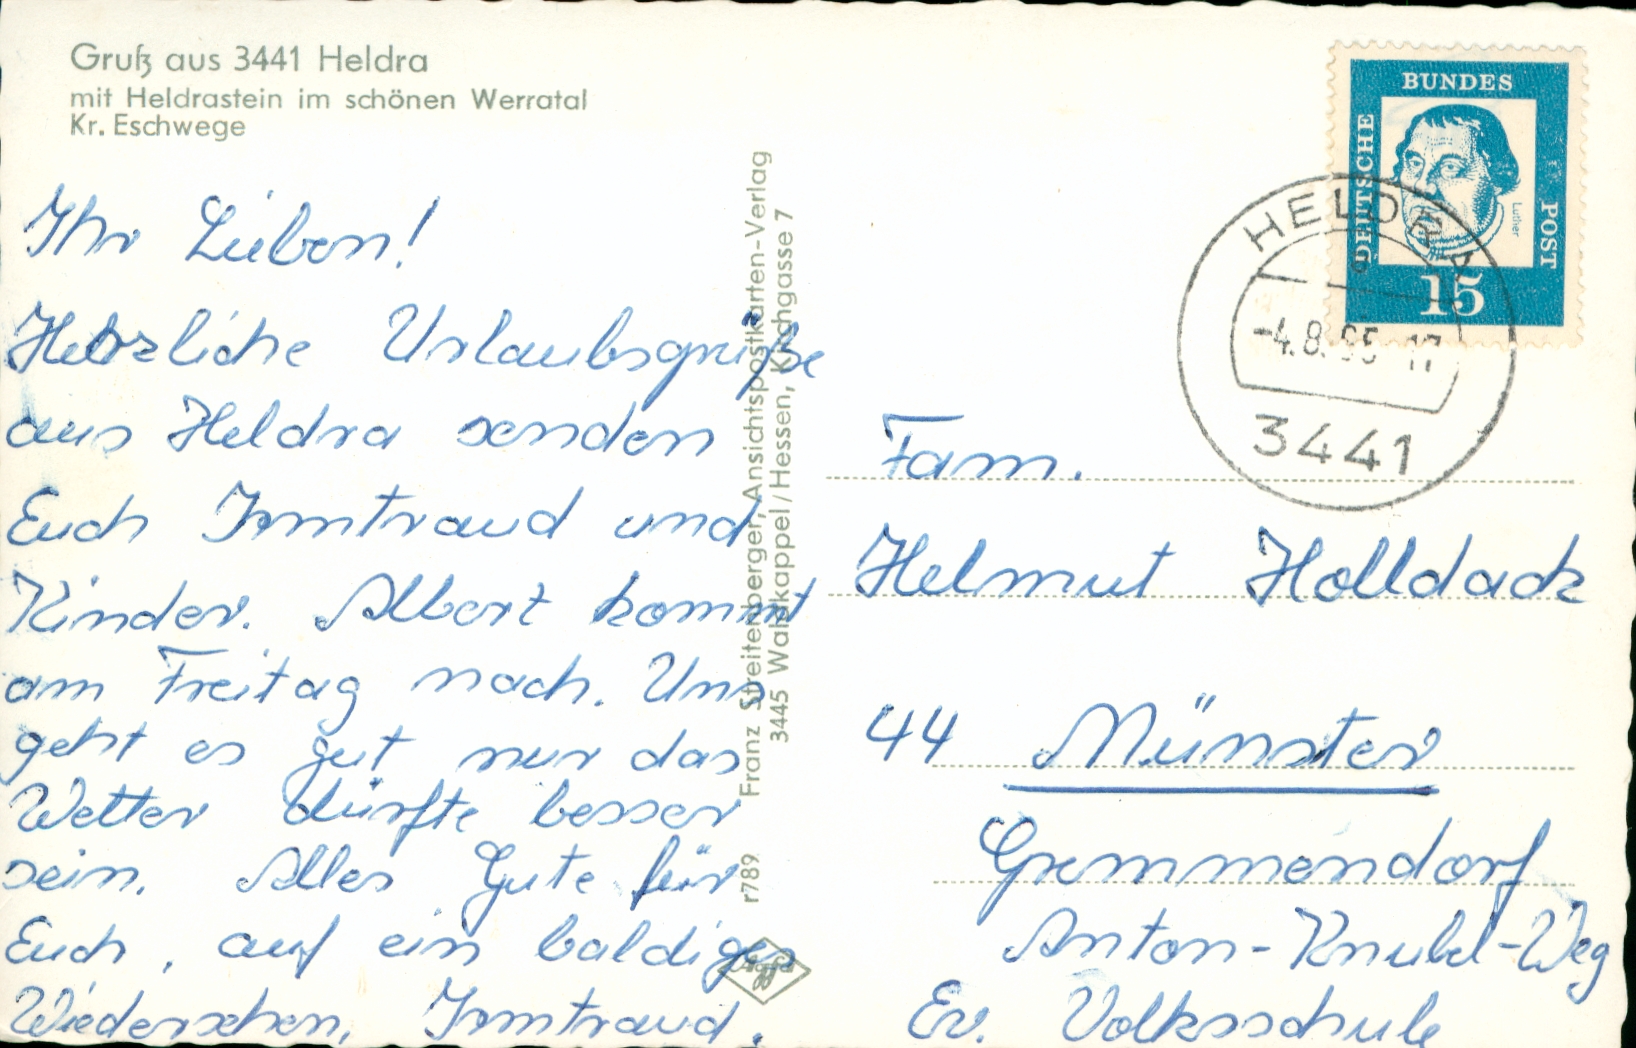 Gruß aus 3441 Heldra
mit Heldrastein im schönen Werratal
Kr. Eschwege
Ihr Lieben!
Herzliche Urlaubsgrüße
aus Heldra senden
Euch Irmtraud und
Kinder. Albert kommt
am Freitag nach. Uns
geht es gut nur das
Wetter dürfte besser
sein. Alles Gute für
Euch, auf ein baldiges
Wiedersehen, Irmtraud.
r789 Franz Streitenberger, Ansichtspostkarten-Verlag
3445 Waldkappel/Hessen, Kirchgasse 7
Agfa
DEUTSCHE
BUNDES
POST
Luther
15
HELDRA
-4.8.65-17
3441
Fam.
Helmut Holldack
44 Münster
Gremmendorf
Anton-Knubel-Weg
Ev. Volksschule